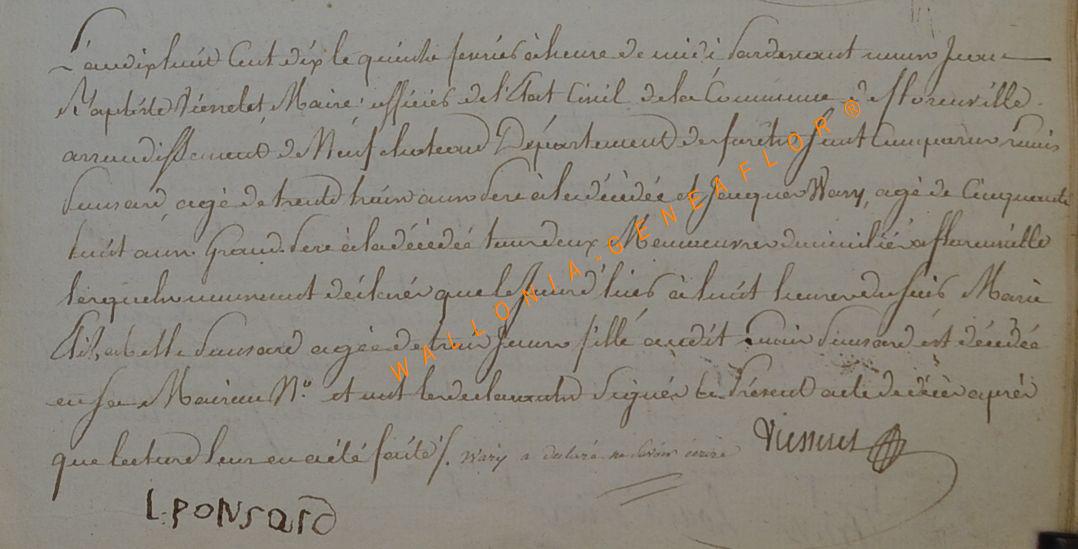 L'an dix huit Cent dix le quinze fevrier à heure de midi Pardevant nous Jean
Baptiste Vierselet Maire officier de l'Etat Civil de la Commune de florenville
arrondissement de Neufchateau Département des forêts sont Comparus
Ponsard agé de trente trois ans Pere à la décédée et Jacques Wary, agé de Cinquante
huit ans Grand Pere à la décédée tous deux Manoeuvres domiciliés a florenville
lesquels nous ont déclaré que le Jour d'hier à huit heures du soir Marie
Elisabette Ponsard agée de trois Jours fille audit Ponsard est décédée
en sa Maison N° et ont les declarants Signés le Présent acte de décès après
que lecture leur en a été faite /. Wary a declaré ne savoir écrire
L PONSARD
WALLONIA-GENEAFLOR ®